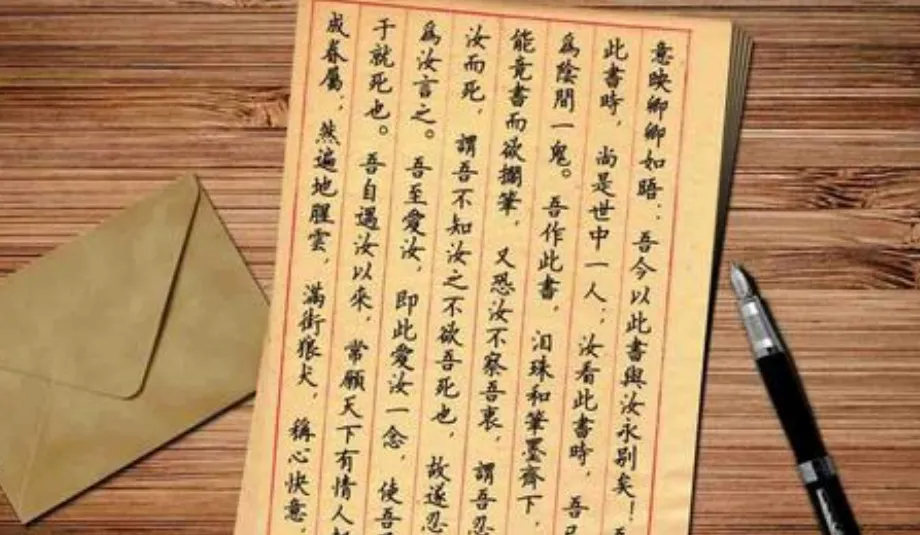 意映卿卿如晤:吾今以此書與汝永别矣!
此書時,尚是世中一人;汝看此書時,吾
爲陰間一鬼。吾作此書,淚珠和筆墨齊下,
能竟書而欲擱筆,又恐汝不察吾衷,謂吾忍
汝而死,謂吾不知汝之不欲吾死也,故遂忍
爲汝言之。吾至愛汝,即此愛汝一念,使吾
于就死也。吾自遇汝以來,常願天下有情人
成眷屬,然遍地腥雲,滿街狼犬,稱心快意,